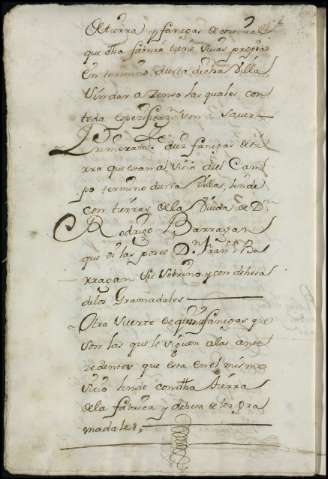 de tierra y fanegas de
que dha fabrica tiene suias propias
en termino desta dicha Villa
lindan las quales con
toda son a saver
Primeramte diez fanegas de tie
rra que estan al sitio del Cam
po termino desta Villa, linde
con tierras de la Viuda de Dn
Rodrigo Barragan
que oi las posee Dn Franco Ba
rragan su sobrino y con dehesa
de los Gramadales
Otra Suerte de quinze fanegas que
son las que se siguen a las ante
zedentes que esta en el mismo
sitio linde con otha tierra
de la fabrica y dehesa de los Gra
madales,